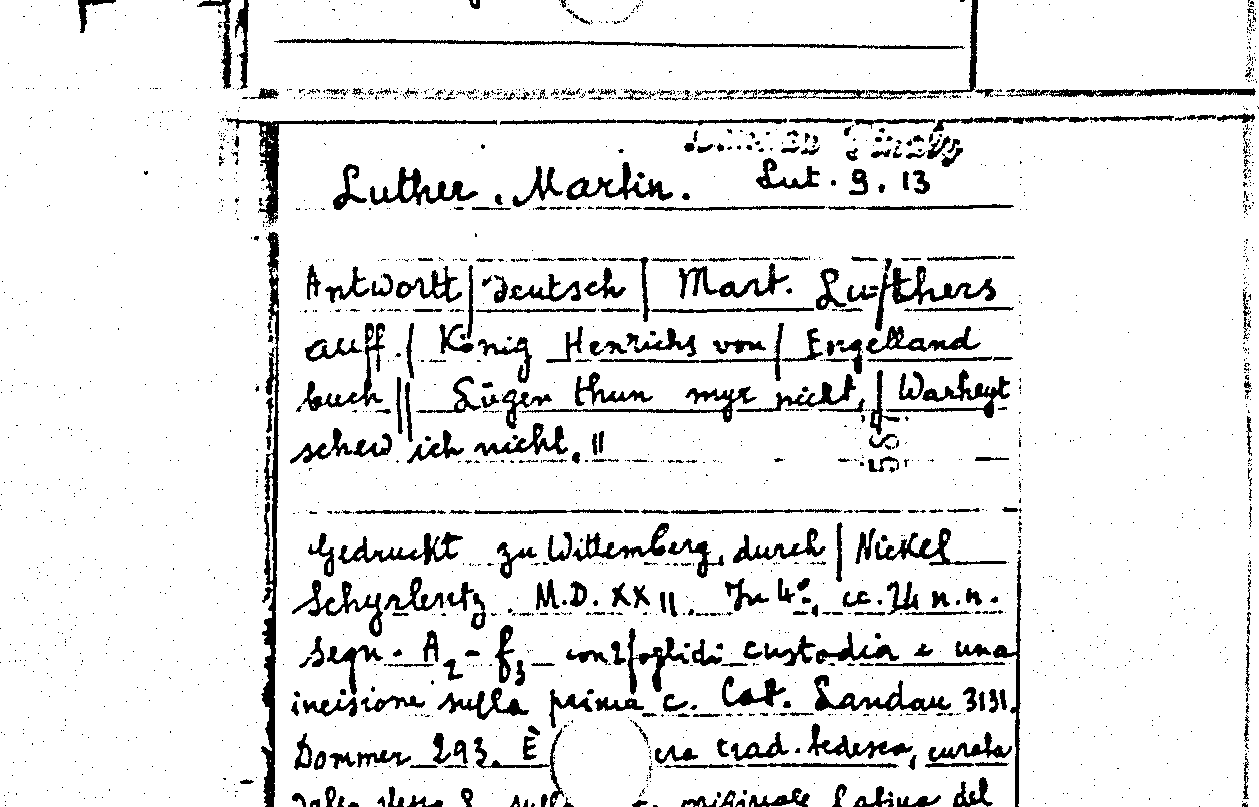 Landau Finaly
Luther, Martin. Lut. 9. 13
Antwortt | deutsch | Mart. Lu=/thers
auff | König Henrichs von | Engelland
buch || Lügen thun myr nicht, | Warheyt
schew ich nicht. ||
Gedruckt zu Wittemberg, durch | Nickel
Schyrlentz. M.D.XXII. In 4º, cc. 24 n.n.
segn. A2 - f3 con 2 fogli di custodia e una
incisione sulla prima c. Cat. Landau 3131.
Dommer 293. È trad. tedesca, curata
dallo stesso L. originale latino del